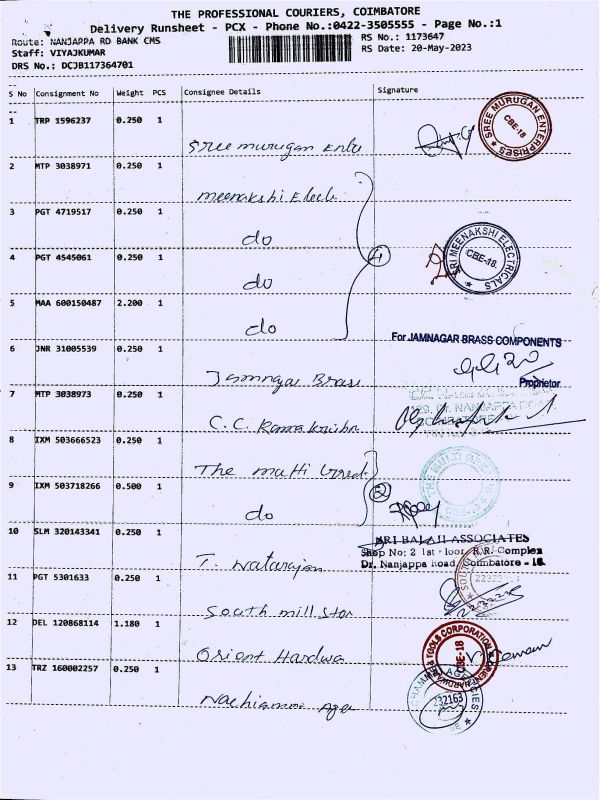 THE PROFESSIONAL COURIERS, COIMBATORE
Delivery Runsheet - PCX - Phone No.:0422-3505555 - Page No.:1
Route: NANJAPPA RD BANK CMS
RS No.: 1173647
Staff: VIYAJKUMAR
RS Date: 20-May-2023
DRS No.: DCJB117364701
S No Consignment No Weight PCS Consignee Details Signature
1 TRP 1596237 0.250 1
Sree murugan Ente
SREE MURUGAN ENTERPRISES
CBE-18.
2 MTP 3038971 0.250 1
meenakshi Elect
3 PGT 4719517 0.250 1
do
4 PGT 4545061 0.250 1
do
4
SRI MEENAKSHI ELECTRICALS
CBE-18.
5 MAA 600150487 2.200 1
do
For JAMNAGAR BRASS COMPONENTS
6 JNR 31005539 0.250 1
Jamnagar Brass
Proprietor
7 MTP 3038973 0.250 1
C.C. Ramakrishn
8 IXM 503666523 0.250 1
The multi Great
9 IXM 503718266 0.500 1
do
2
10 SLM 320143341 0.250 1
T. Natarajan
SRI BALAJI ASSOCIATES
Shop No: 2 1st floor, R.R. Complex
Dr. Nanjappa Road Coimbatore - 18.
11 PGT 5301633 0.250 1
South mill Stor
12 DEL 120868114 1.180 1
Orient Hardwa
& TOOLS CORPORATION
CBE-18
13 TRZ 160002257 0.250 1
Nachiammai Age
232163